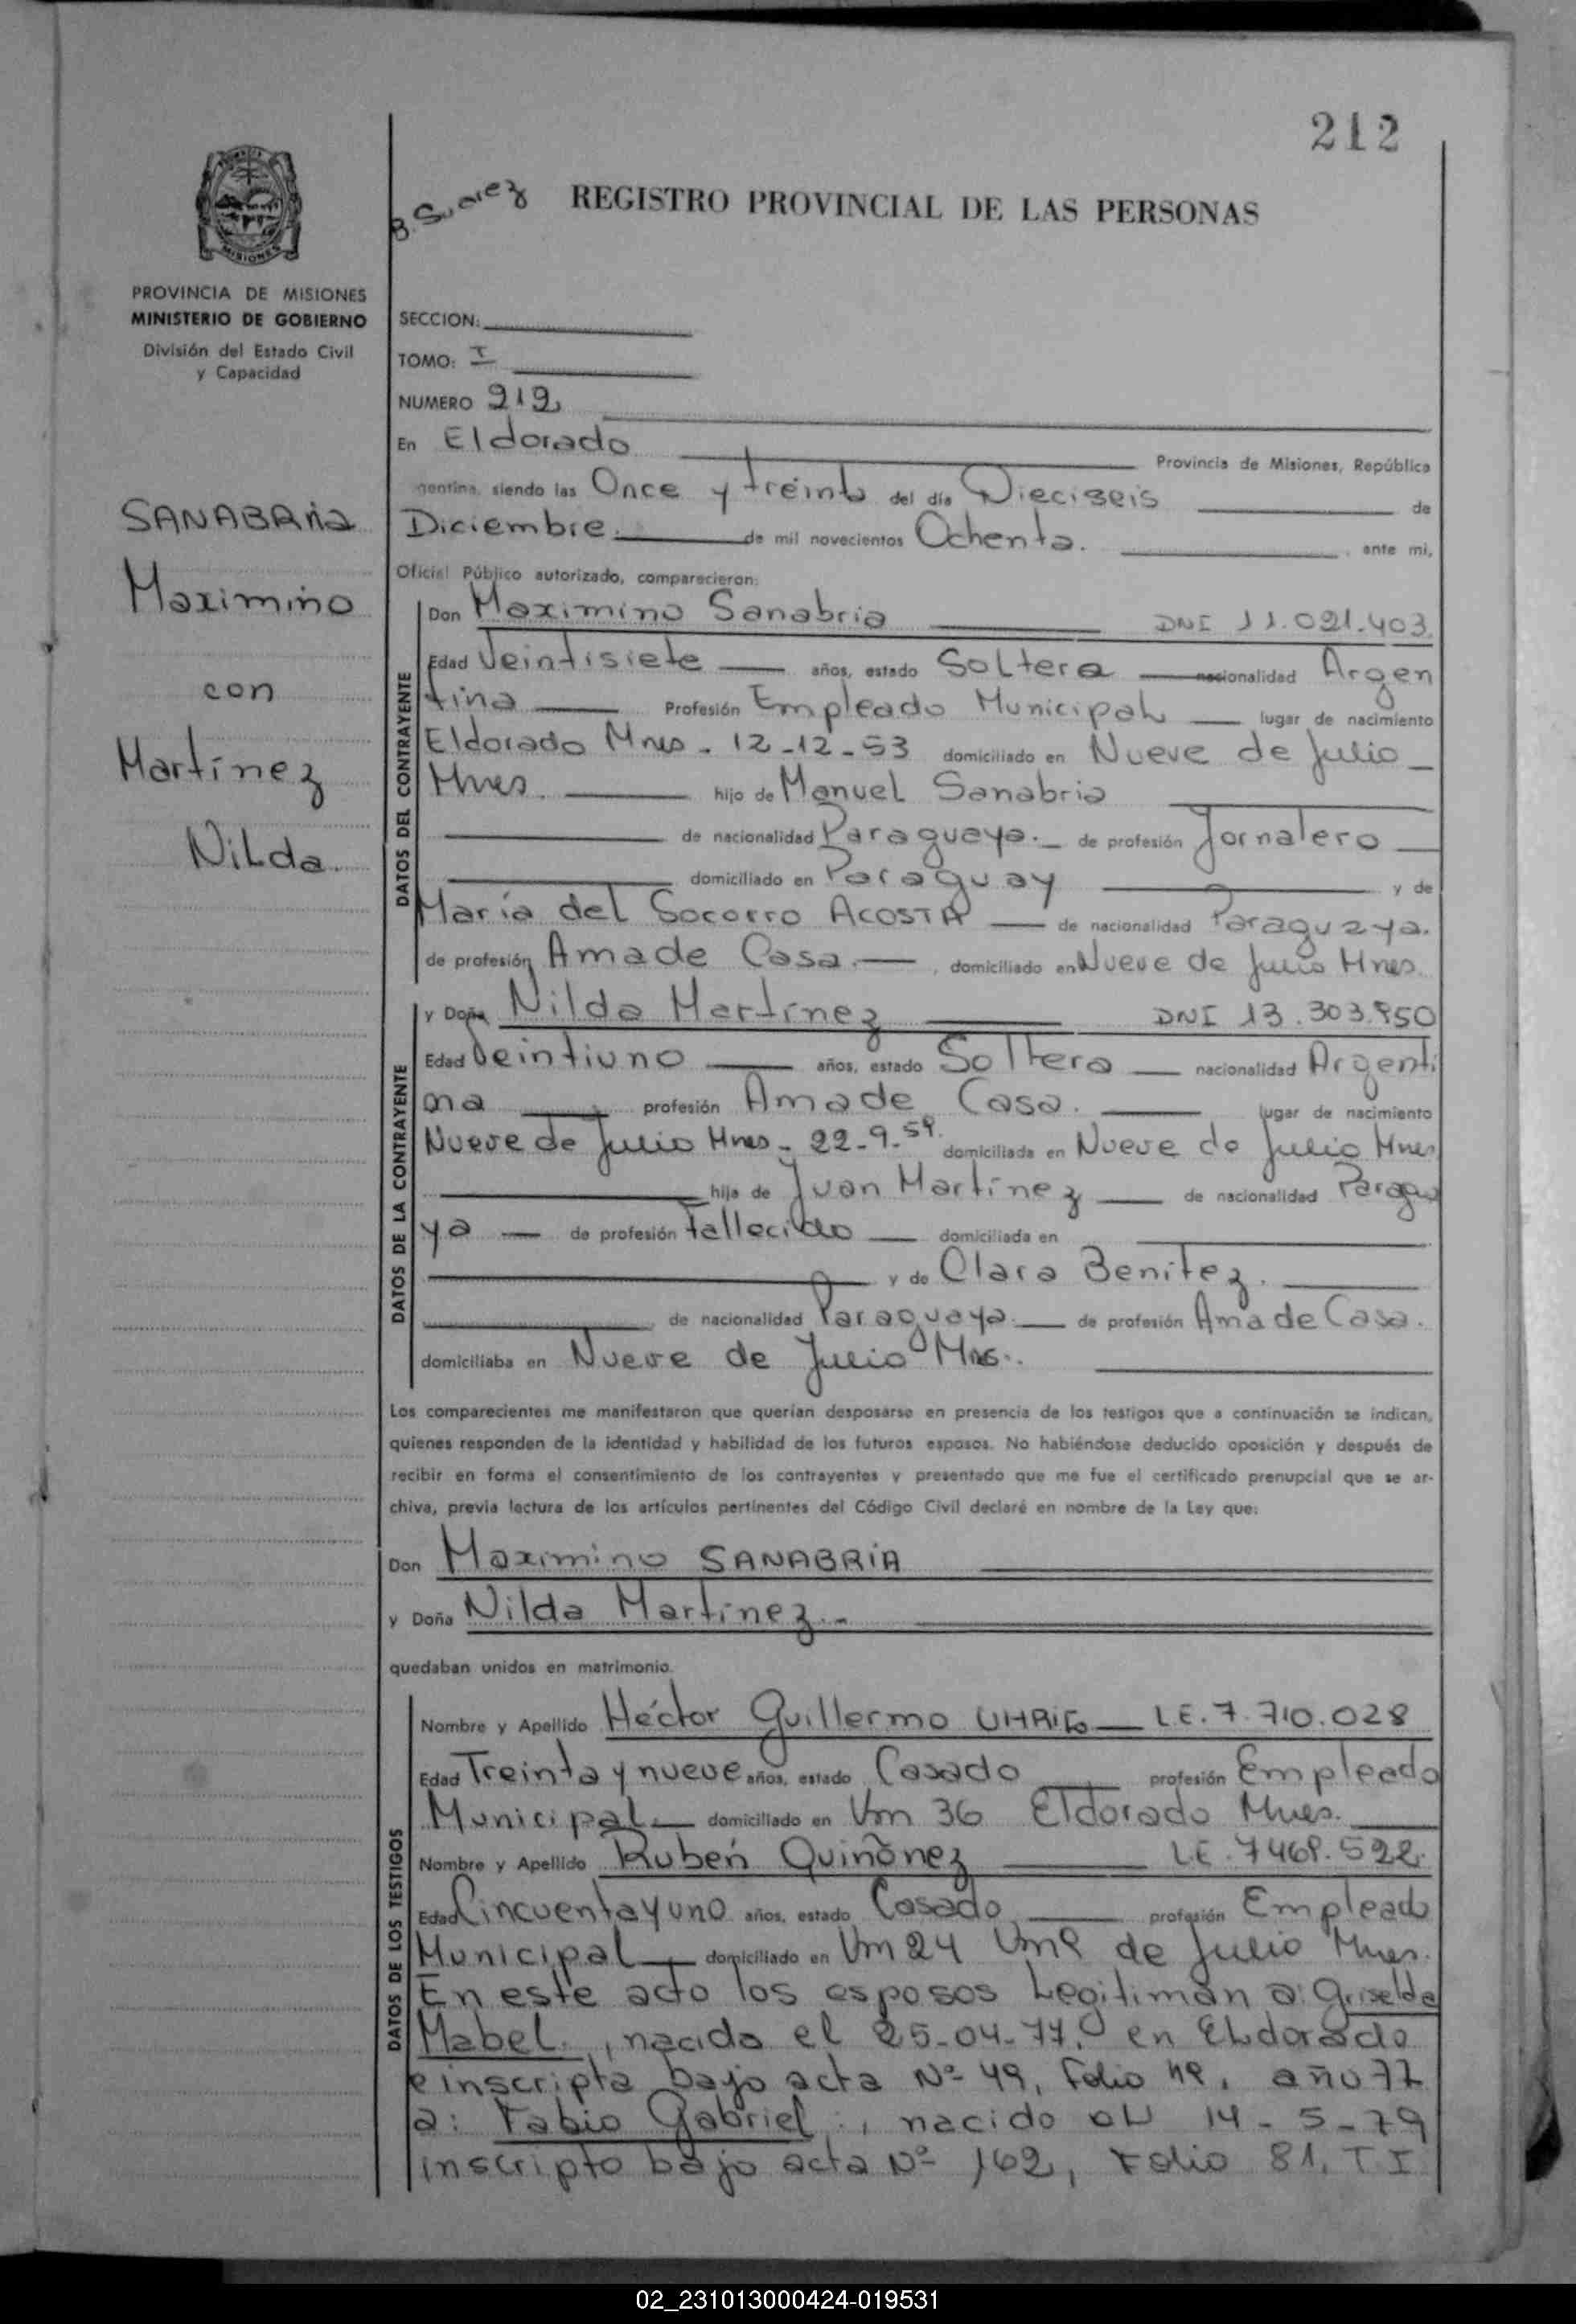 212
B. Suarez
REGISTRO PROVINCIAL DE LAS PERSONAS
MISIONES
PROVINCIA DE MISIONES
MINISTERIO DE GOBIERNO
División del Estado Civil
y Capacidad
SANABRia
Maximino
con
Martínez
Nilda.
SECCION:
TOMO: I
NUMERO 212
En Eldorado Provincia de Misiones, República
gentina, siendo las Once y treinta del día Dieciseis de
Diciembre. de mil novecientos Ochenta. ante mi,
Oficial Público autorizado, comparecieron:
DATOS DEL CONTRAYENTE
Don Maximino Sanabria DNI 11.021.403.
Edad Veintisiete años, estado Soltero nacionalidad Argen
tina Profesión Empleado Municipal lugar de nacimiento
Eldorado Mnes - 12-12-53 domiciliado en Nueve de Julio
Mnes. hijo de Manuel Sanabria
de nacionalidad Paraguaya. de profesión Jornalero
domiciliado en Paraguay y de
María del Socorro ACOSTA de nacionalidad Paraguaya.
de profesión Amade Casa. domiciliado en Nueve de Julio Mnes.
DATOS DE LA CONTRAYENTE
y Doña Nilda Martínez DNI 13.303.950
Edad Veintiuno años, estado Soltera nacionalidad Argenti
na profesión Amade Casa. lugar de nacimiento
Nueve de Julio Mnes - 22-9-59. domiciliada en Nueve de Julio Mnes
hija de Juan Martínez de nacionalidad Paragua
ya de profesión Fallecido domiciliada en
y de Clara Benítez.
de nacionalidad Paraguaya. de profesión Ama de Casa.
domiciliaba en Nueve de Julio Mns.
Los comparecientes me manifestaron que querían desposarse en presencia de los testigos que a continuación se indican,
quienes responden de la identidad y habilidad de los futuros esposos. No habiéndose deducido oposición y después de
recibir en forma el consentimiento de los contrayentes y presentado que me fue el certificado prenupcial que se ar-
chiva, previa lectura de los artículos pertinentes del Código Civil declaré en nombre de la Ley que:
Don Maximino SANABRiA
y Doña Nilda Martínez.-
quedaban unidos en matrimonio.
DATOS DE LOS TESTIGOS
Nombre y Apellido Héctor Guillermo UHRiG L.E. 7.710.028
Edad Treinta y nueve años, estado Casado profesión Empleado
Municipal domiciliado en Km 36 Eldorado Mnes.
Nombre y Apellido Rubén Quiñónez L.E. 7468.522.
Edad Cincuenta y uno años, estado Casado profesión Empleado
Municipal domiciliado en Km 24 de Julio Mnes.
En este acto los esposos Legitiman a: Griselda
Mabel., nacida el 25-04-77. en Eldorado
e inscripta bajo acta Nº 49, Folio, año 77
a: Fabio Gabriel., nacido el 14-5-79
inscripto bajo acta Nº 162, Folio 81, T I
02_231013000424-019531